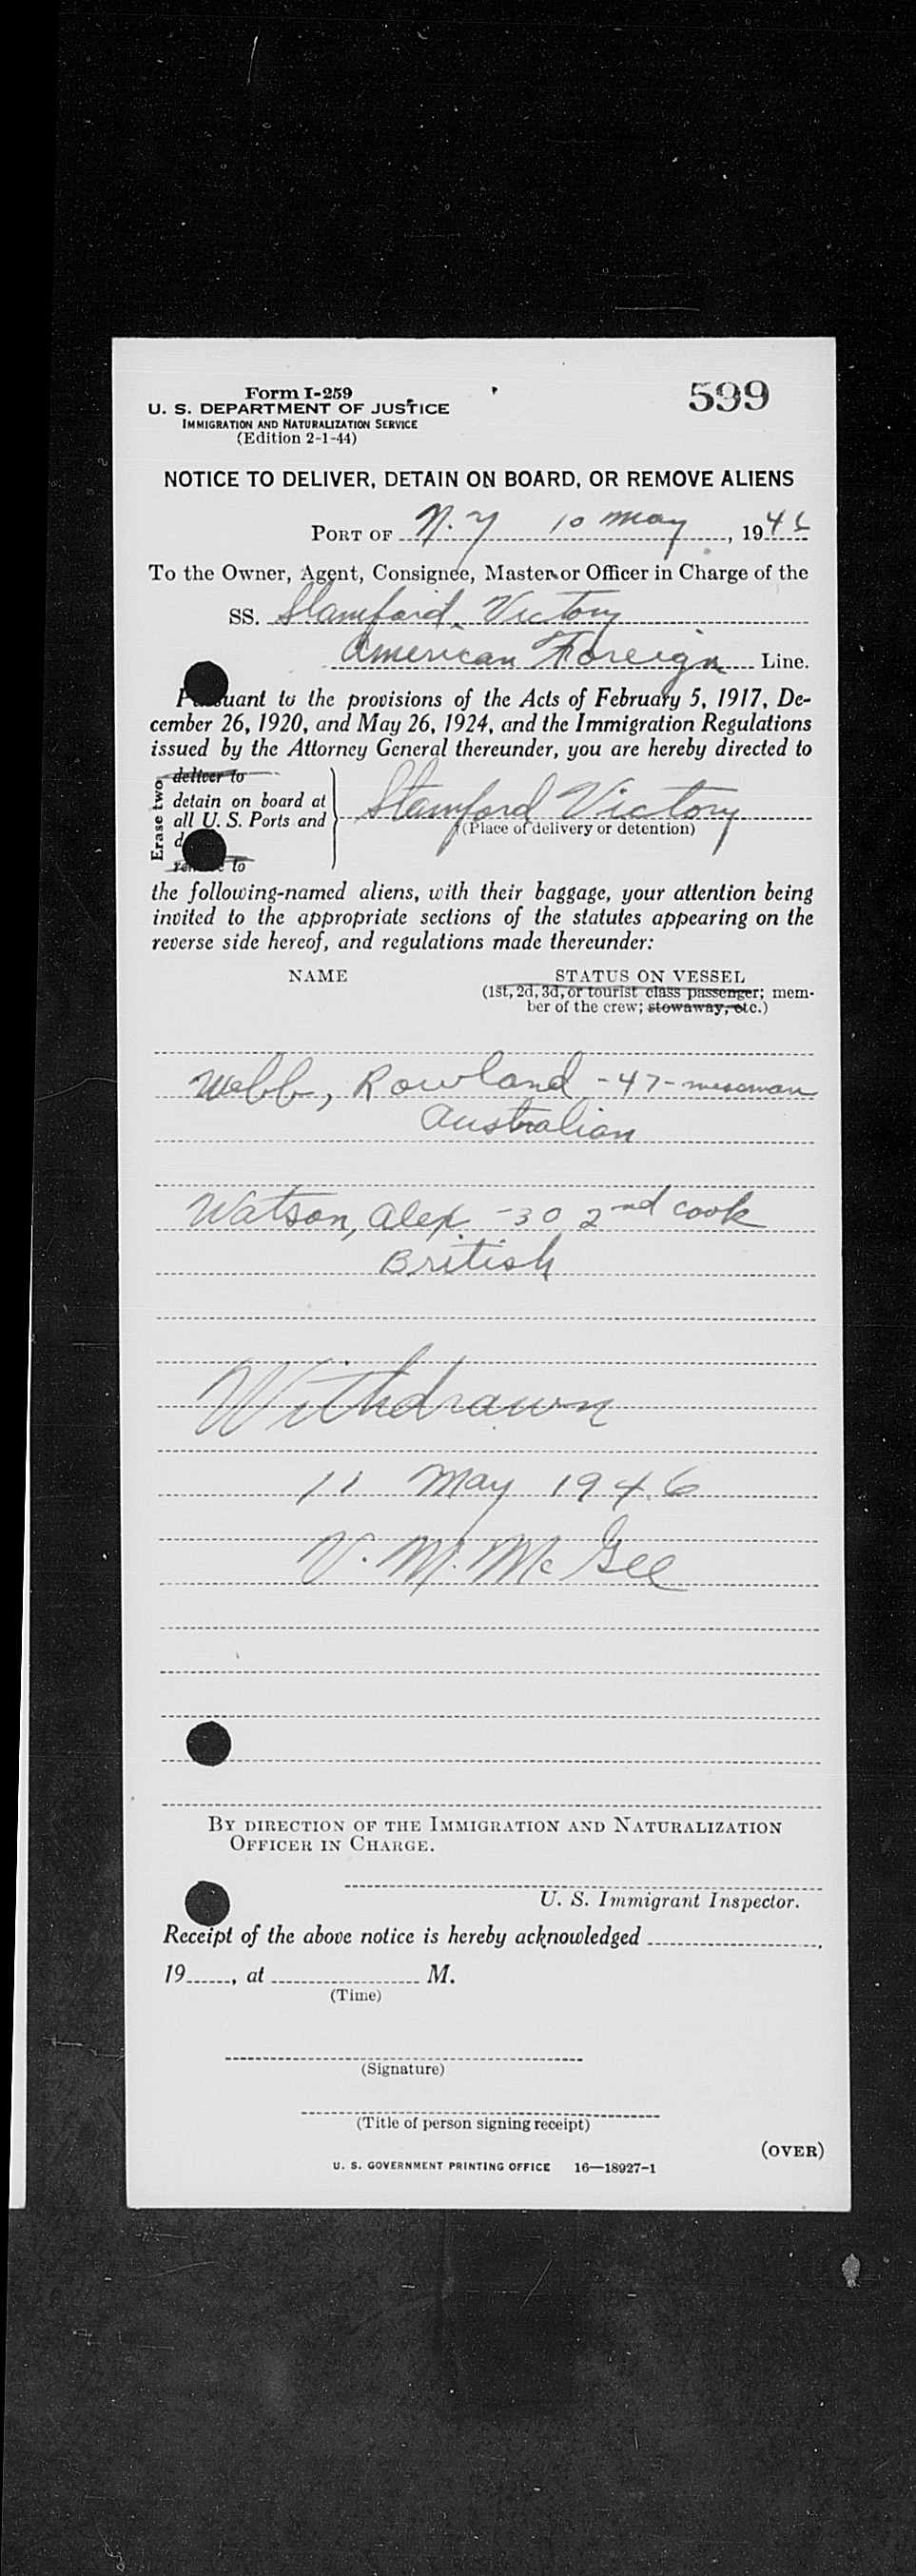 Form I-259
U. S. DEPARTMENT OF JUSTICE
IMMIGRATION AND NATURALIZATION SERVICE
(Edition 2-1-44)
599
NOTICE TO DELIVER, DETAIN ON BOARD, OR REMOVE ALIENS
PORT OF N.Y 10 May, 1946
To the Owner, Agent, Consignee, Master or Officer in Charge of the
SS. Stamford Victory
American Foreign Line.
Pursuant to the provisions of the Acts of February 5, 1917, De-
cember 26, 1920, and May 26, 1924, and the Immigration Regulations
issued by the Attorney General thereunder, you are hereby directed to
Erase two
deliver to
detain on board at
all U. S. Ports and
remove to
Stamford Victory
(Place of delivery or detention)
the following-named aliens, with their baggage, your attention being
invited to the appropriate sections of the statutes appearing on the
reverse side hereof, and regulations made thereunder:
NAME STATUS ON VESSEL
(1st, 2d, 3d, or tourist class passenger; mem-
ber of the crew; stowaway, etc.)
Webb, Rowland -47- messman
Australian
Watson, Alex -30 2nd cook
British
Withdrawn
11 May 1946
V. M. McGee
BY DIRECTION OF THE IMMIGRATION AND NATURALIZATION
OFFICER IN CHARGE.
U. S. Immigrant Inspector.
Receipt of the above notice is hereby acknowledged ,
19 , at M.
(Time)
(Signature)
(Title of person signing receipt)
(OVER)
U. S. GOVERNMENT PRINTING OFFICE 16—18927-1